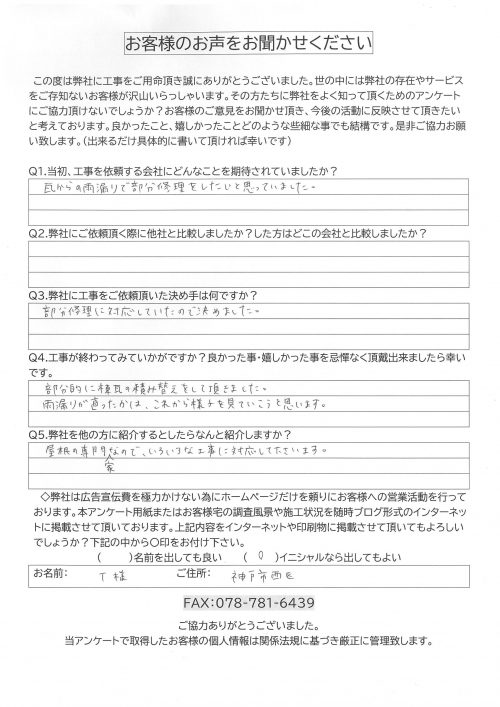 お客様のお声をお聞かせください
この度は弊社に工事をご用命頂き誠にありがとうございました。世の中には弊社の存在やサービス
をご存知ないお客様が沢山いらっしゃいます。その方たちに弊社をよく知って頂くためのアンケート
にご協力頂けないでしょうか？お客様のご意見をお聞かせ頂き、今後の活動に反映させて頂きたい
と考えております。良かったこと、嬉しかったことどのような些細な事でも結構です。是非ご協力お願
い致します。（出来るだけ具体的に書いて頂ければ幸いです）
Q1.当初、工事を依頼する会社にどんなことを期待されていましたか？
瓦からの雨漏りで部分修理をしたいと思っていました。
Q2.弊社にご依頼頂く際に他社と比較しましたか？した方はどこの会社と比較しましたか？
Q3.弊社に工事をご依頼頂いた決め手は何ですか？
部分修理に対応していたので決めました。
Q4.工事が終わってみていかがですか？良かった事・嬉しかった事を忌憚なく頂戴出来ましたら幸い
です。
部分的に棟瓦の積み替えをして頂きました。
雨漏りが直ったかは、これから様子を見ていこうと思います。
Q5.弊社を他の方に紹介するとしたらなんと紹介しますか？
屋根の専門家なので、いろいろな工事に対応してださいます。
◇弊社は広告宣伝費を極力かけない為にホームページだけを頼りにお客様への営業活動を行って
おります。本アンケート用紙またはお客様宅の調査風景や施工状況を随時ブログ形式のインターネッ
トに掲載させて頂いております。上記内容をインターネットや印刷物に掲載させて頂いてもよろしい
でしょうか？下記の中から〇印をお付け下さい。
（　　）名前を出しても良い　（ O ）イニシャルなら出してもよい
お名前： T 様　ご住所： 神戸市西区
FAX:078-781-6439
ご協力ありがとうございました。
当アンケートで取得したお客様の個人情報は関係法規に基づき厳正に管理致します。